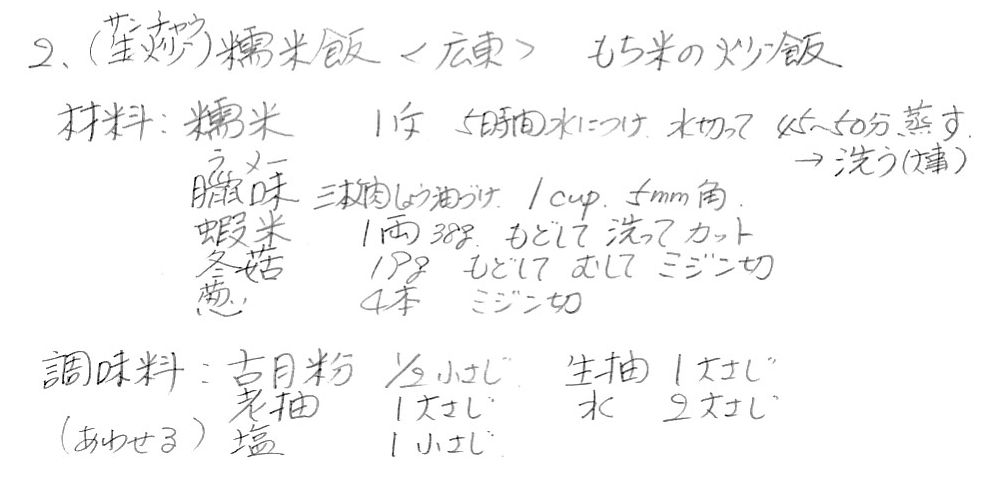 サンチャウ
2、(生炒)糯米飯 <広東> もち米の炒飯
材料: 糯米 1斤 5時間水につけ 水切って 45〜50分蒸す
→洗う(大事)
ラメー
臘味 三枚肉しょう油づけ 1cup. 5mm角.
蝦米 1両 38g. もどして洗ってカット
冬菇 19g もどして むして ミジン切
葱 4本 ミジン切
調味料: 古月粉 1/2小さじ 生抽 1大さじ
老抽 1大さじ 水 2大さじ
(あわせる) 塩 1小さじ